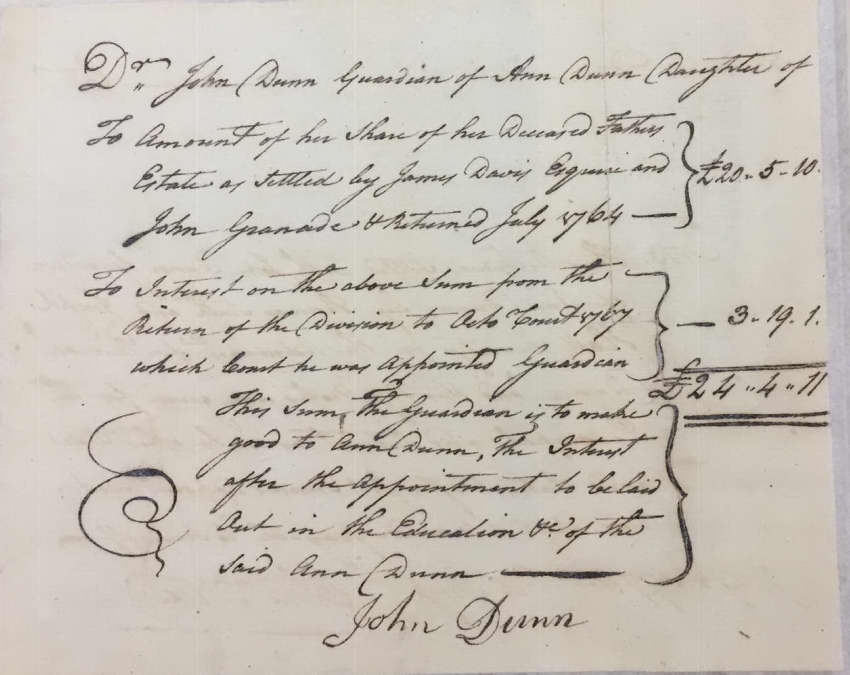 Dr. John Dunn Guardian of Ann Dunn Daughter of
To Amount of her Share of her Deceased Fathers
Estate as Settled by James Davis Esquire and
John Granade & Returned July 1764 — £20 " 5 - 10.
To Interest on the above Sum from the
Return of the Division to Octo Court 1767 — 3 - 19. 1.
which Court he was Appointed Guardian
£24 " 4 " 11
This Sum, The Guardian is to make
good to Ann Dunn, The Interest
after the Appointment to be laid
Out in the Education &c. of the
Said Ann Dunn —
John Dunn